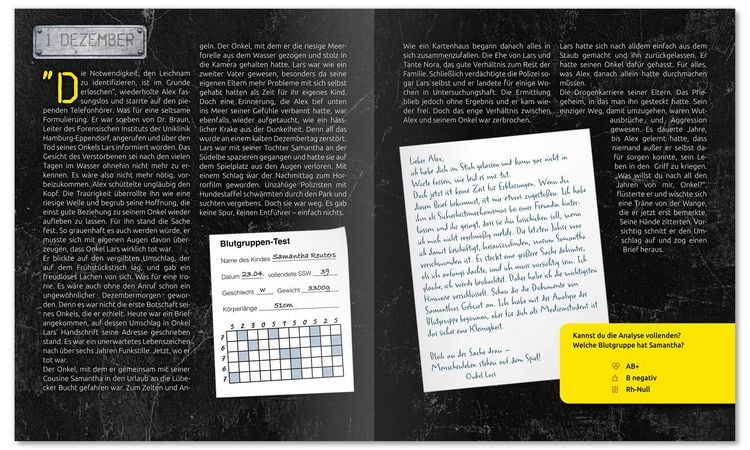 1 DEZEMBER
"Die Notwendigkeit, den Leichnam
zu identifizieren, ist im Grunde
erloschen", wiederholte Alex fas-
sungslos und starrte auf den pie-
penden Telefonhörer. Was für eine seltsame
Formulierung. Er war soeben von Dr. Braun,
Leiter des Forensischen Instituts der Uniklinik
Hamburg-Eppendorf, angerufen und über den
Tod seines Onkels Lars informiert worden. Das
Gesicht des Verstorbenen sei nach den vielen
Tagen im Wasser ohnehin nicht mehr zu er-
kennen. Es wäre also nicht mehr nötig, vor-
beizukommen. Alex schüttelte ungläubig den
Kopf. Die Traurigkeit überrollte ihn wie eine
riesige Welle und begrub seine Hoffnung, die
einst gute Beziehung zu seinem Onkel wieder
aufleben zu lassen. Für ihn stand die Sache
fest. So grauenhaft es auch werden würde, er
musste sich mit eigenen Augen davon über-
zeugen, dass Onkel Lars wirklich tot war.
Er blickte auf den vergilbten Umschlag, der
auf dem Frühstückstisch lag, und gab ein
freudloses Lachen von sich. Was für eine Iro-
nie. Es wäre auch ohne den Anruf schon ein
ungewöhnlicher Dezembermorgen gewor-
den. Denn es war nicht die erste Botschaft sei-
nes Onkels, die er erhielt. Heute war ein Brief
angekommen, auf dessen Umschlag in Onkel
Lars' Handschrift seine Adresse geschrieben
stand. Es war ein unerwartetes Lebenszeichen
nach über sechs Jahren Funkstille. Jetzt, wo er
tot war.
Der Onkel, mit dem er gemeinsam mit seiner
Cousine Samantha in den Urlaub an die Lübe-
cker Bucht gefahren war. Zum Zelten und An-
geln. Der Onkel, mit dem er die riesige Meer-
forelle aus dem Wasser gezogen und stolz in
die Kamera gehalten hatte. Lars war wie ein
zweiter Vater gewesen, besonders da seine
eigenen Eltern mehr Probleme mit sich selbst
gehabt hatten als Zeit für ihr eigenes Kind.
Doch eine Erinnerung, die Alex tief unten
ins Meer seiner Gefühle verbannt hatte, war
ebenfalls wieder aufgetaucht, wie ein häss-
licher Krake aus der Dunkelheit. Denn all das
wurde an einem kalten Dezembertag zerstört.
Lars war mit seiner Tochter Samantha an der
Südelbe spazieren gegangen und hatte sie auf
dem Spielplatz aus den Augen verloren. Mit
einem Schlag war der Nachmittag zum Hor-
rorfilm geworden. Unzählige Polizisten mit
Hundestaffel schwärmten durch den Park und
suchten vergebens. Doch sie war weg. Es gab
keine Spur, keinen Entführer – einfach nichts.
Blutgruppen-Test
Name des Kindes Samantha Reuters
Datum 23.04. vollendete SSW 39
Geschlecht w Gewicht 3300g
Körperlänge 51cm
Wie ein Kartenhaus begann danach alles in
sich zusammenzufallen. Die Ehe von Lars und
Tante Nora, das gute Verhältnis zum Rest der
Familie. Schließlich verdächtigte die Polizei so-
gar Lars selbst und er landete für einige Wo-
chen in Untersuchungshaft. Die Ermittlung
blieb jedoch ohne Ergebnis und er kam wie-
der frei. Doch das enge Verhältnis zwischen
Alex und seinem Onkel war zerbrochen.
Lieber Alex,
ich habe dich im Stich gelassen und kann gar nicht in
Worte fassen, wie leid es mir tut.
Doch jetzt ist keine Zeit für Erklärungen. Wenn du
diesen Brief bekommst, ist mir etwas zugestoßen. Ich habe
ihn als Sicherheitsmechanismus bei einer Freundin hinter-
lassen und ihr gesagt, dass sie ihn losschicken soll, wenn
ich mich nicht regelmäßig melde. Die letzten Jahre war
ich damit beschäftigt, herauszufinden, warum Samantha
verschwunden ist. Es steckt eine größere Sache dahinter,
als ich anfangs dachte, und ich muss vorsichtig sein. Ich
glaube, ich werde beobachtet. Daher habe ich die wichtigsten
Hinweise verschlüsselt. Schau dir die Dokumente von
Samanthas Geburt an. Ich habe mit der Analyse der
Blutgruppe begonnen, aber für dich als Medizinstudent ist
das sicher eine Kleinigkeit.
Bleib an der Sache dran –
Menschenleben stehen auf dem Spiel!
Onkel Lars
Lars hatte sich nach alldem einfach aus dem
Staub gemacht und ihn zurückgelassen. Er
hatte seinen Onkel dafür gehasst. Für alles,
was Alex danach allein hatte durchmachen
müssen.
Die Drogenkarriere seiner Eltern. Das Pfle-
geheim, in das man ihn gesteckt hatte. Sein
einziger Weg, damit umzugehen, waren Wut-
ausbrüche und Aggression
gewesen. Es dauerte Jahre,
bis Alex gelernt hatte, dass
niemand außer er selbst da-
für sorgen konnte, sein Le-
ben in den Griff zu kriegen.
„Was willst du nach all den
Jahren von mir, Onkel?",
flüsterte er und wischte sich
eine Träne von der Wange,
die er jetzt erst bemerkte.
Seine Hände zitterten. Vor-
sichtig schnitt er den Um-
schlag auf und zog einen
Brief heraus.
Kannst du die Analyse vollenden?
Welche Blutgruppe hat Samantha?
AB+
B negativ
Rh-Null